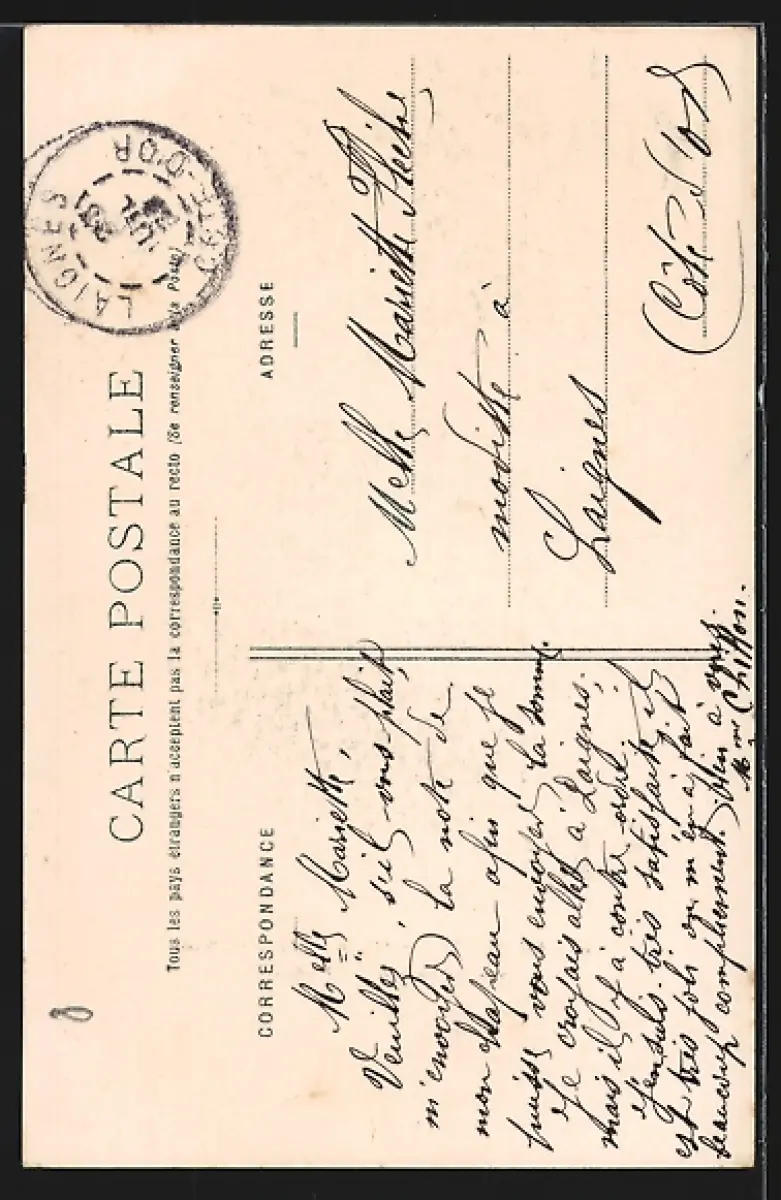 CARTE POSTALE
Tous les pays étrangers n'acceptent pas la correspondance au recto (Se renseigner à la Poste)
CORRESPONDANCE
Melle Mariette,
Veuillez, s'il vous plaît,
m'envoyer la note de
mon chapeau afin que je
puisse vous envoyer la somme.
Je croyais aller à Laignes;
mais il y a contre-ordre.
J'en suis très satisfaite, il
est très joli on m'en a fait
beaucoup compliment. Bien à vous.
Mme Chiffon.
ADRESSE
Melle Mariette
modiste à
Laignes
(Côte-d'Or)
LAIGNES
CÔTE-D'OR
8